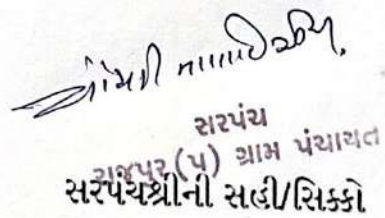 સરપંચ
રાજપુર (પ) ગ્રામ પંચાયત
સરપંચશ્રીની સહી/સિક્કો